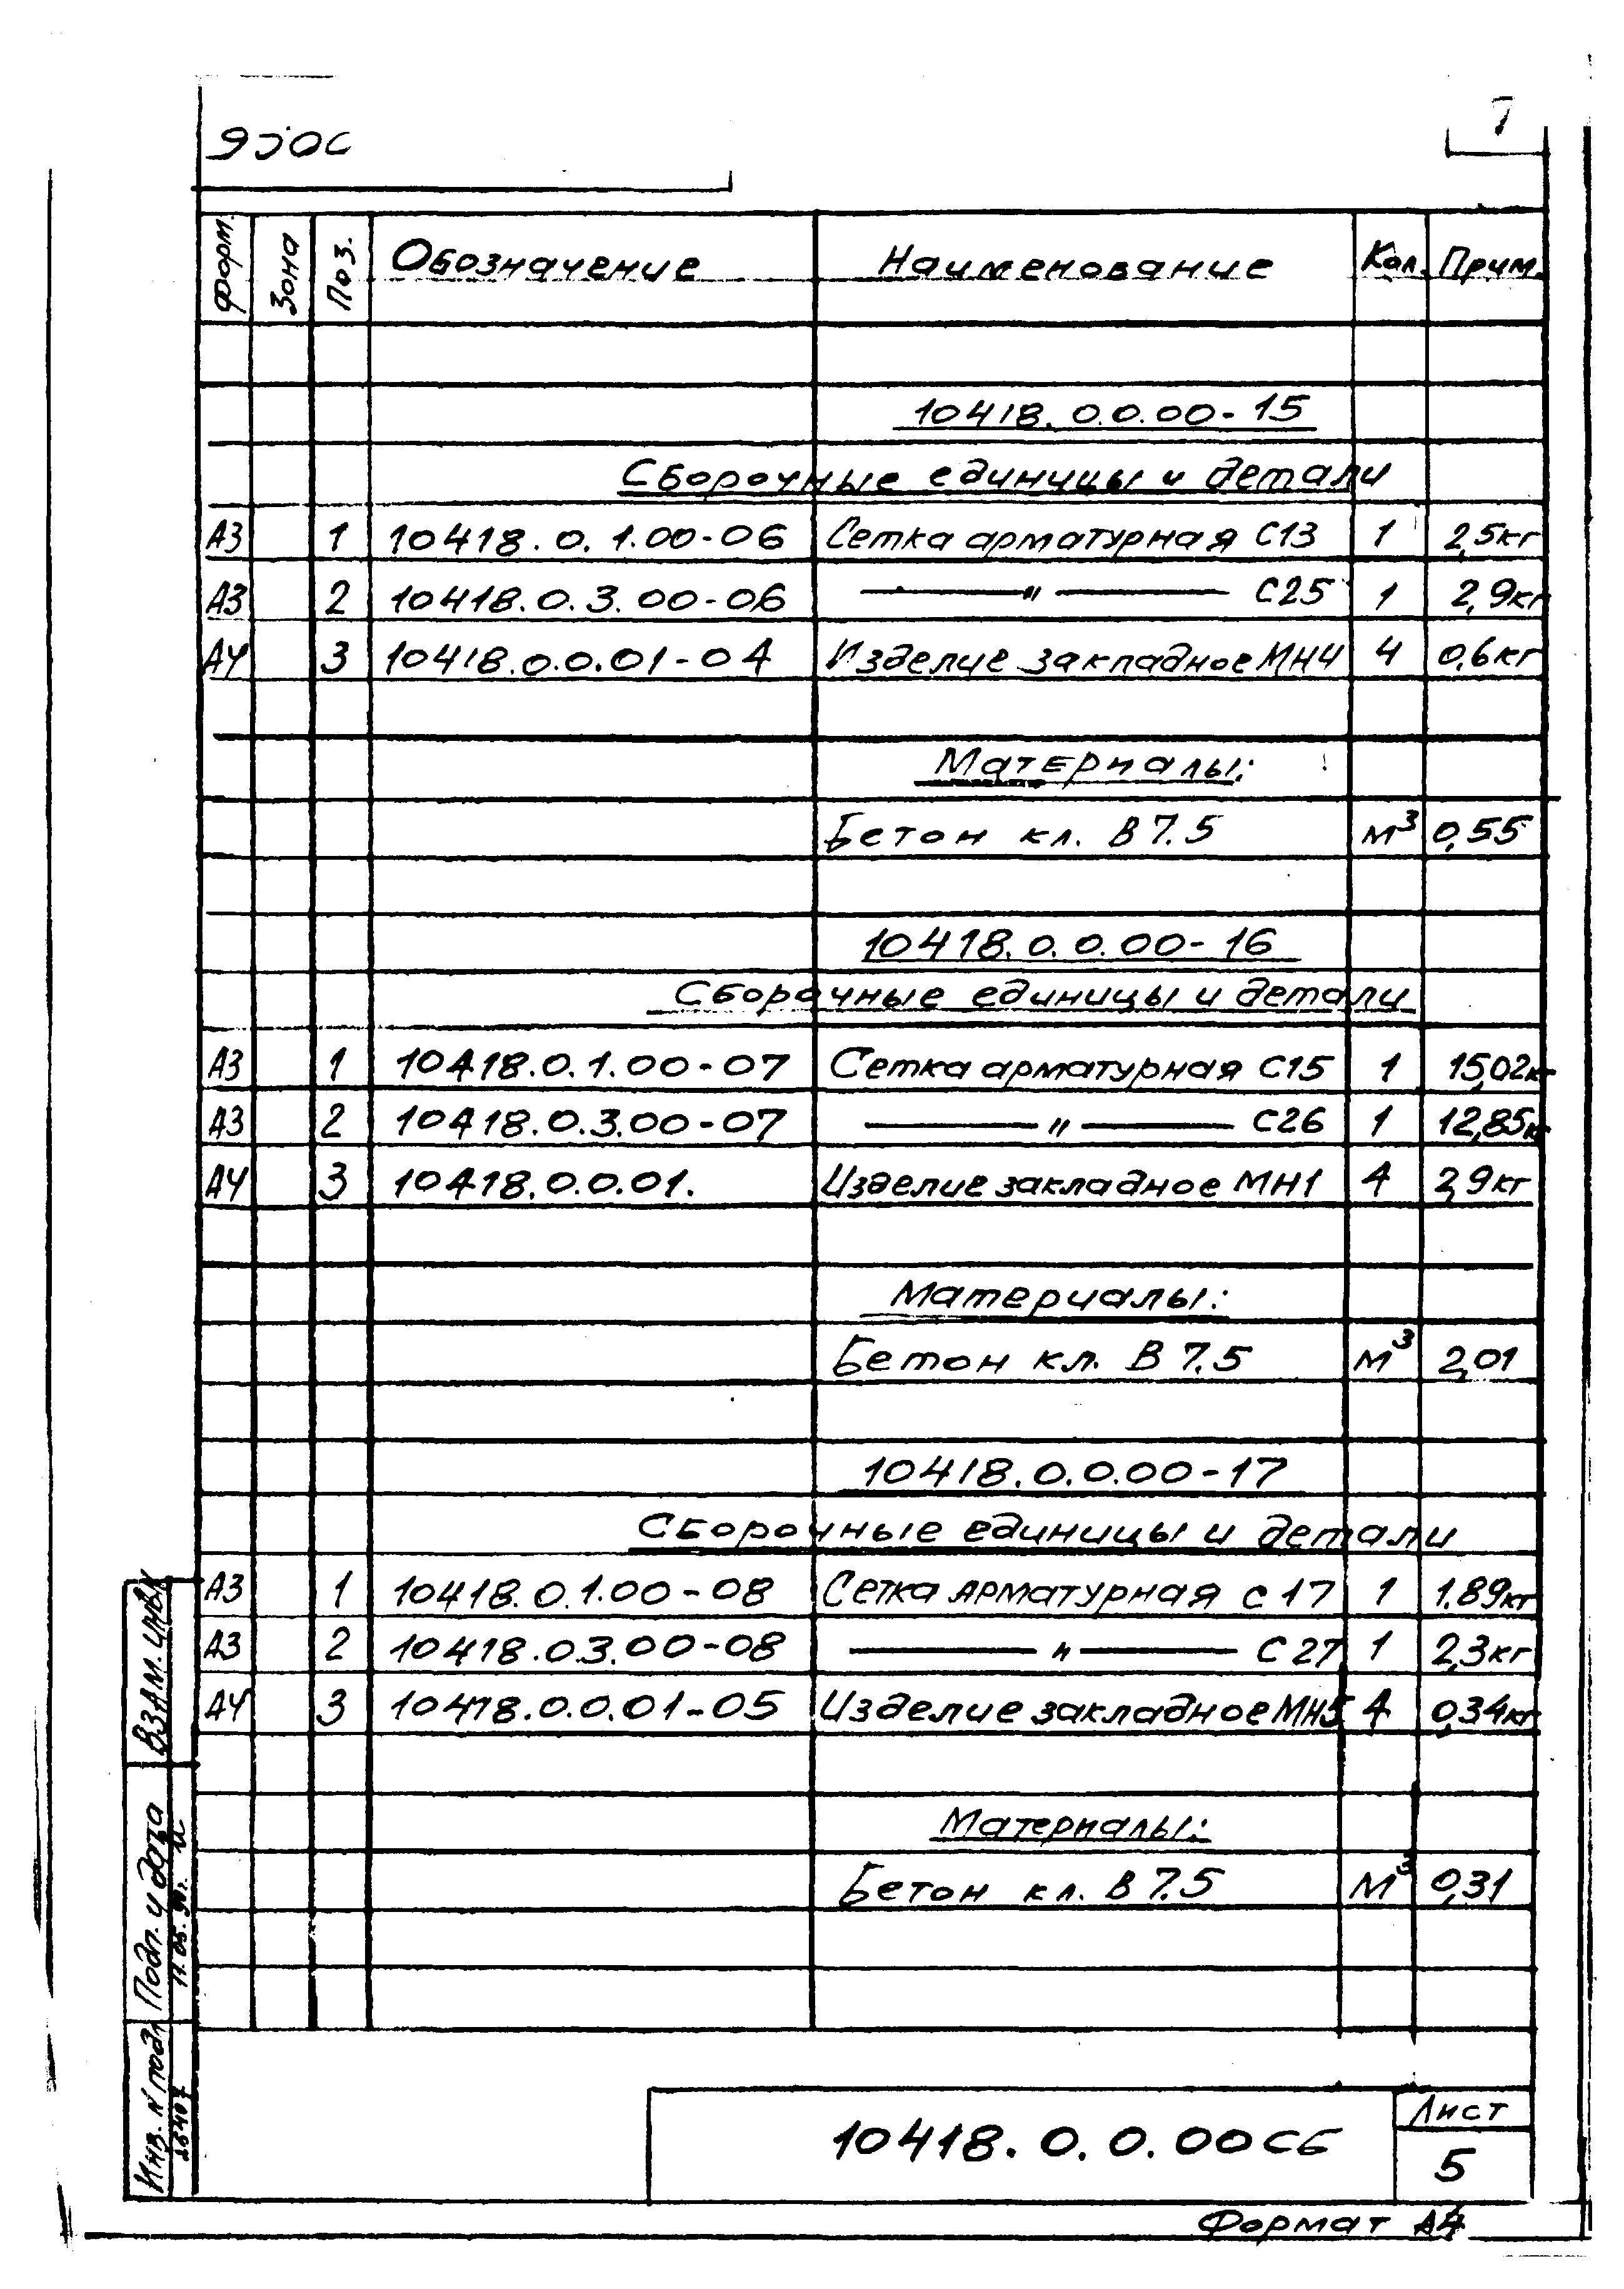 Форм. Зона Поз. Обозначение Наименование Кол. Прим.
10418.0.0.00-15
Сборочные единицы и детали
А3 1 10418.0.1.00-06 Сетка арматурная С13 1 2,5кг
А3 2 10418.0.3.00-06 —"— С25 1 2,9кг
А4 3 10418.0.0.01-04 Изделие закладное МН4 4 0,6кг
Материалы:
Бетон кл. В 7.5 м³ 0,55
10418.0.0.00-16
Сборочные единицы и детали
А3 1 10418.0.1.00-07 Сетка арматурная С15 1 15,02к
А3 2 10418.0.3.00-07 —"— С26 1 12,85к
А4 3 10418.0.0.01. Изделие закладное МН1 4 2,9кг
Материалы:
Бетон кл. В 7.5 м³ 2,01
10418.0.0.00-17
Сборочные единицы и детали
А3 1 10418.0.1.00-08 Сетка арматурная с 17 1 1.89кг
А3 2 10418.0.3.00-08 —"— С 27 1 2,3кг
А4 3 10418.0.0.01-05 Изделие закладное МН5 4 0,34кг
Материалы:
Бетон кл. В 7.5 м³ 0,31
Взам. инв.
Подп. и дата
11.05.90г.
Инв. N подл
10418.0.0.00 СБ
Лист
5
Формат А4